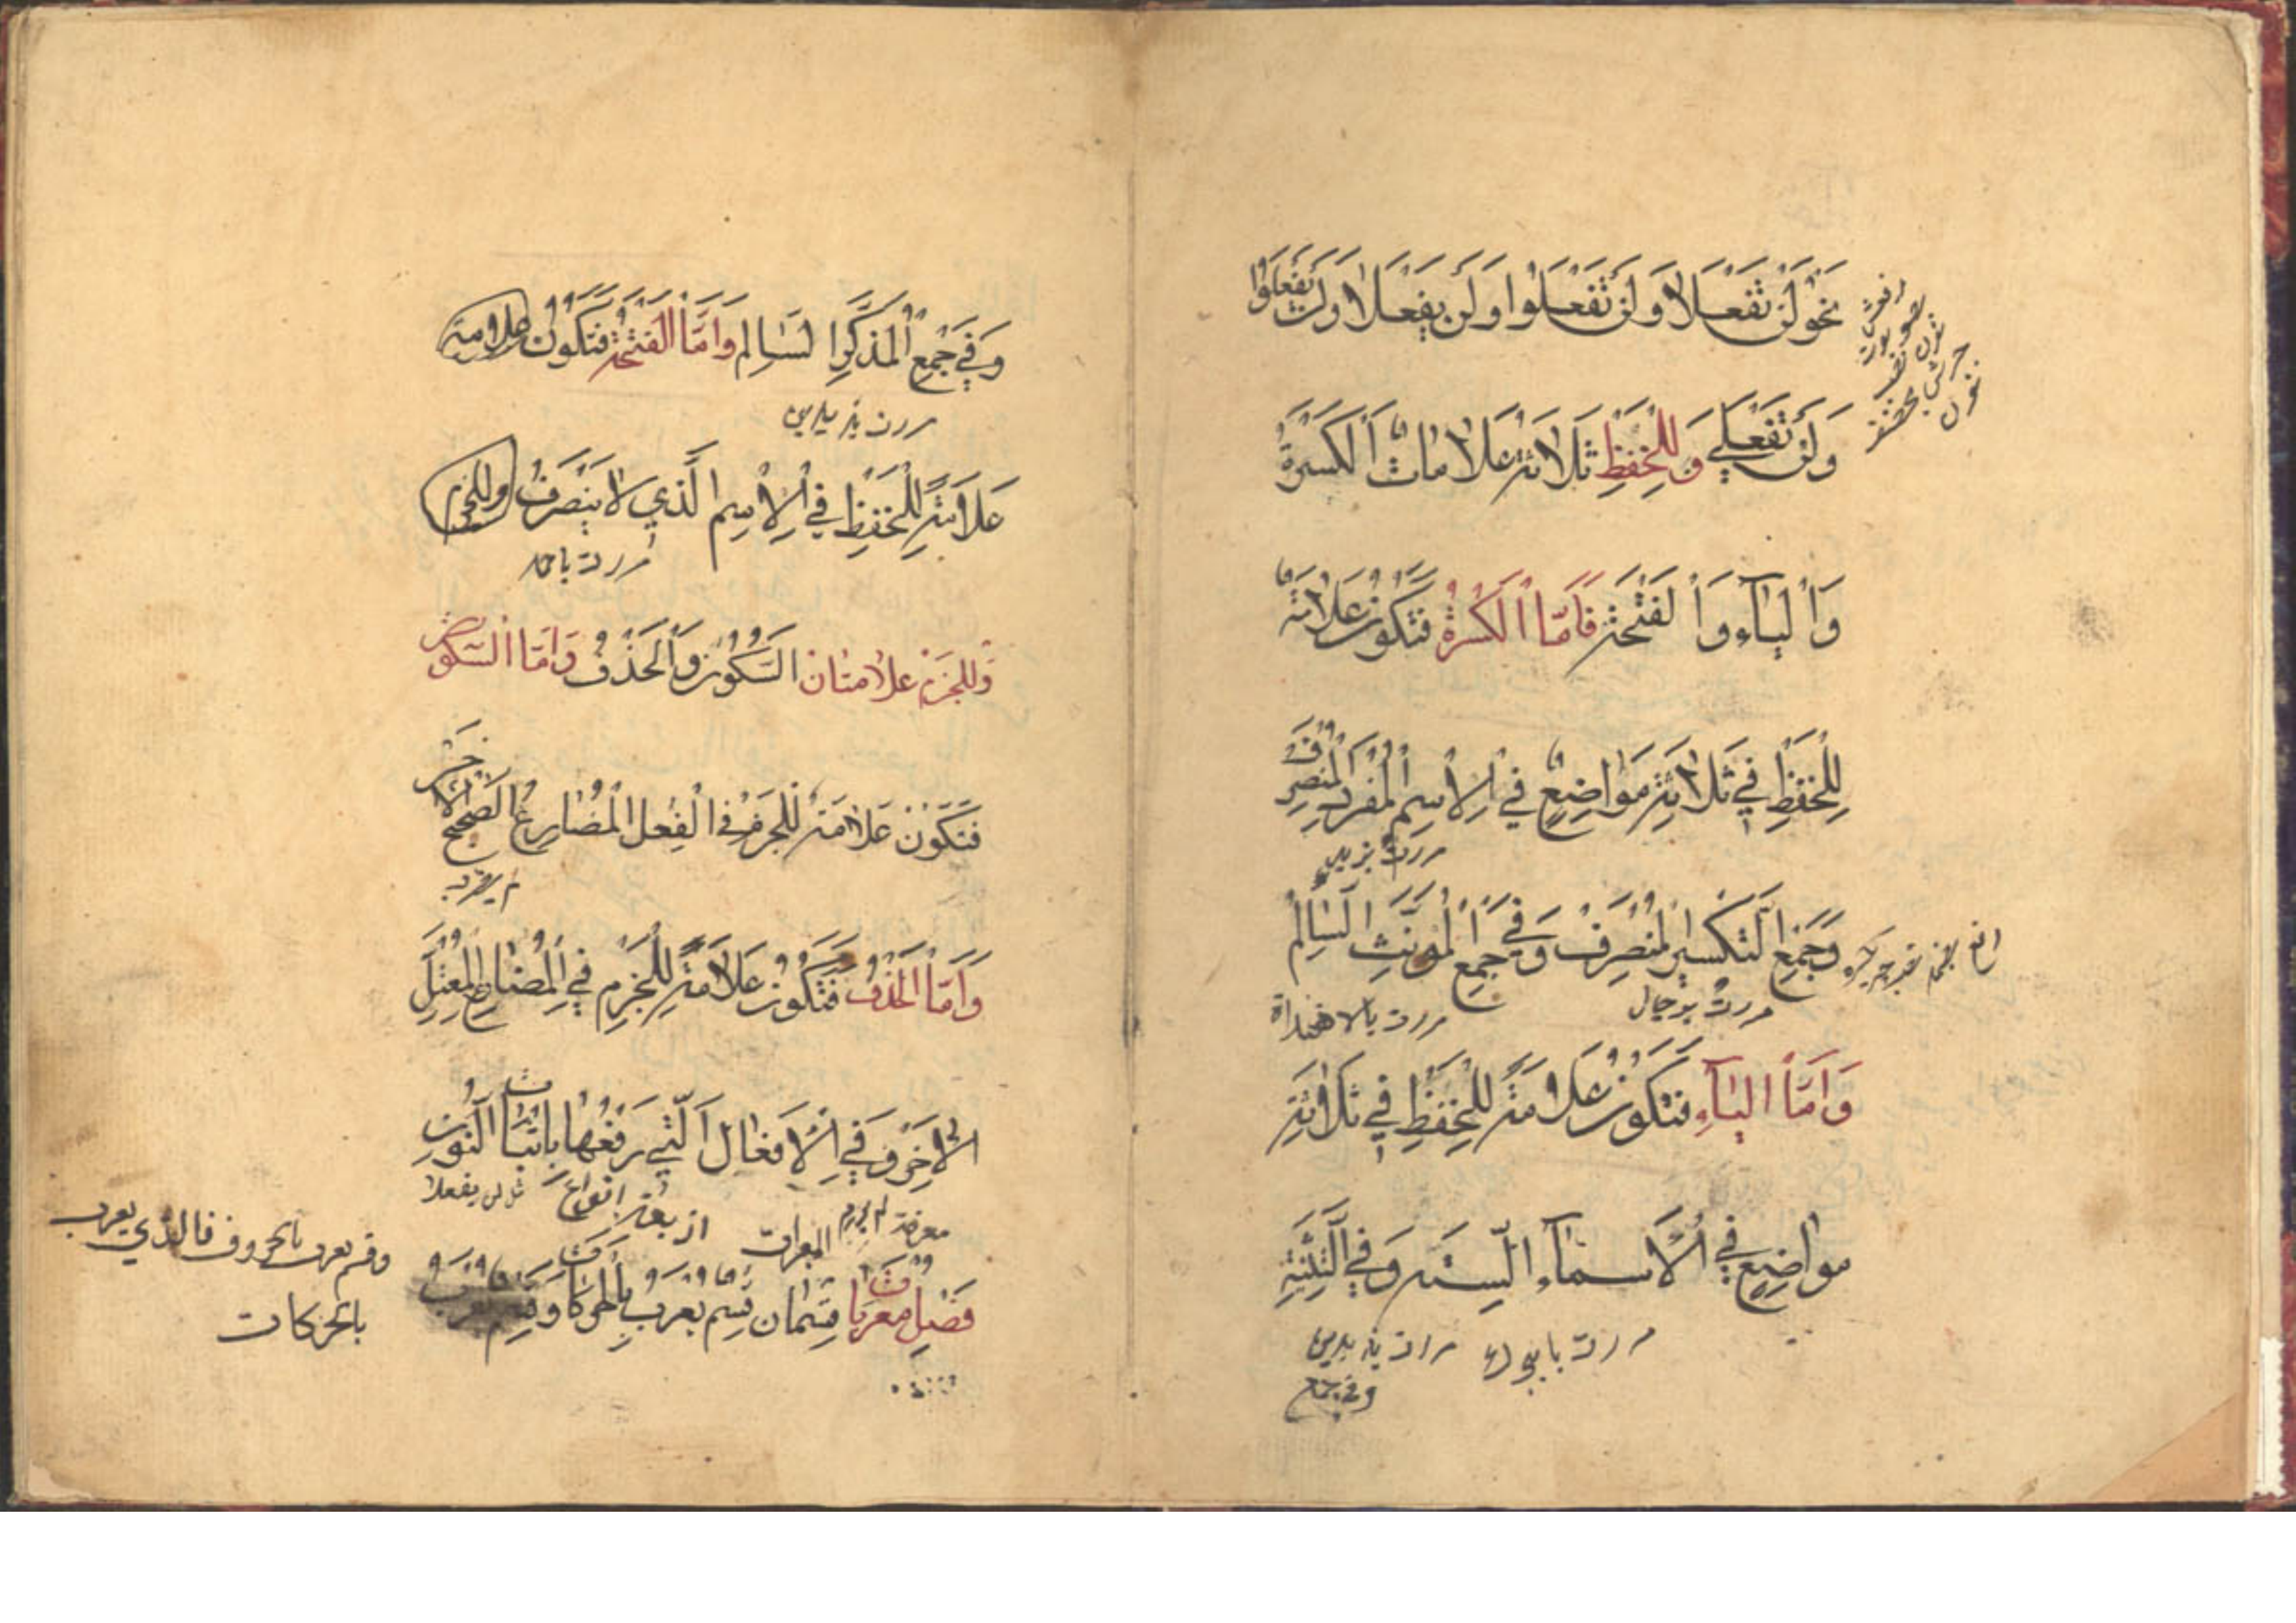 نحو لن تفعلا ولن تفعلوا ولن يفعلا ولن يفعلوا
ولن تفعلي وللخفظ ثلاثة علامات الكسرة
والياء والفتحة فاما الكسرة فتكون علامة
للخفظ في ثلاثة مواضع في الاسم المفرد المنصرف
مررت بزيد
وجمع التكسير المنصرف وفي جمع المونث السالم
مررت برجال
مررت بالاهنداة
واما الياء فتكون علامة للخفظ في ثلاثة
مواضع في الاسماء الستة وفي التثنية
مررت بابيك مررت بزيدين
وفي جمع
وفي جمع المذكر السالم واما الفتحة فتكون علامة
مررت بزيدين
علامة للخفظ في الاسم الذي لا ينصرف وللجزم
مررت باحمد
وللجزم علامتان السكون والحذف واما السكون
فتكون علامة للجزم في الفعل المضارع الصحيح الاخر
لم يضرب
واما الحذف فتكون علامة للجزم في المضارع المعتل
الاخر وفي الافعال التي رفعها باثبات النون
معرفة
المعرات
اربعة انواع
فصل معربات قسمان قسم يعرب بالحركات وقسم يعرب
وقسم يعرب بالحروف فالذي يعرب
بالحركات